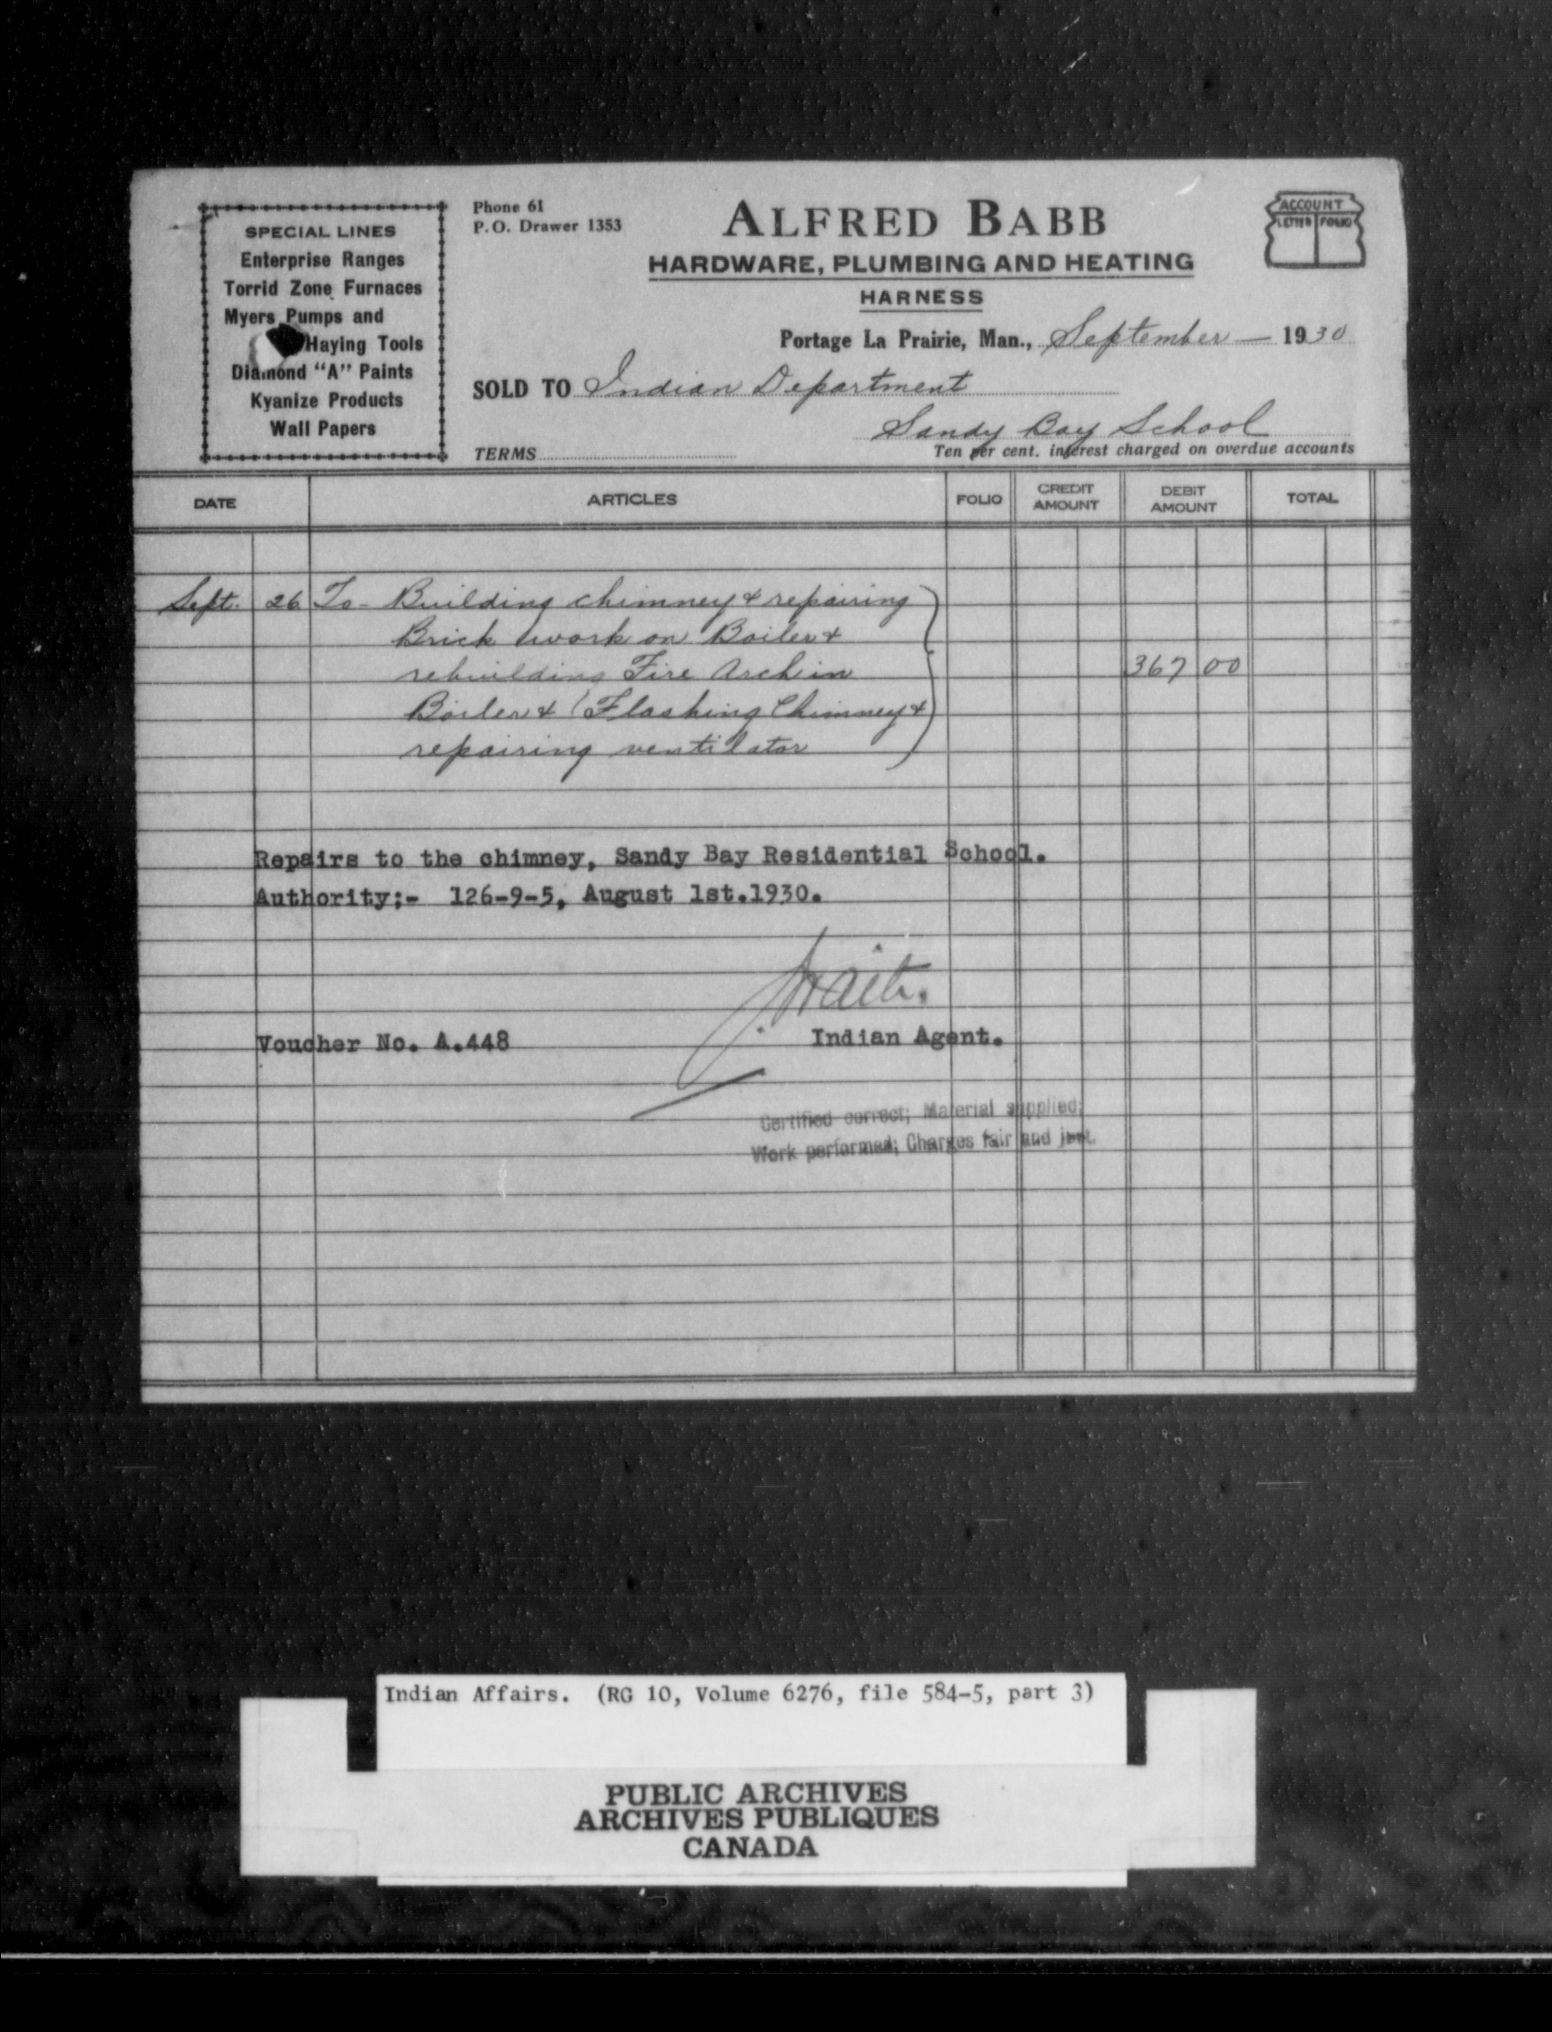 SPECIAL LINES
Enterprise Ranges
Torrid Zone Furnaces
Myers Pumps and
Haying Tools
Diamond "A" Paints
Kyanize Products
Wall Papers
Phone 61
P.O. Drawer 1353
ALFRED BABB
HARDWARE, PLUMBING AND HEATING
HARNESS
ACCOUNT
LETTER FOLIO
Portage La Prairie, Man., September — 1930
SOLD TO Indian Department
Sandy Bay School
TERMS
Ten per cent. interest charged on overdue accounts
DATE ARTICLES FOLIO CREDIT AMOUNT DEBIT AMOUNT TOTAL
Sept. 26 To - Building chimney & repairing
Brick work on Boiler &
rebuilding Fire Arch in 367 00
Boiler & Flashing Chimney &
repairing ventilator
Repairs to the chimney, Sandy Bay Residential School.
Authority;- 126-9-5, August 1st.1930.
Voucher No. A.448
Indian Agent.
Certified correct; Material supplied;
Work performed; Charges fair and just.
Indian Affairs. (RG 10, Volume 6276, file 584-5, part 3)
PUBLIC ARCHIVES
ARCHIVES PUBLIQUES
CANADA